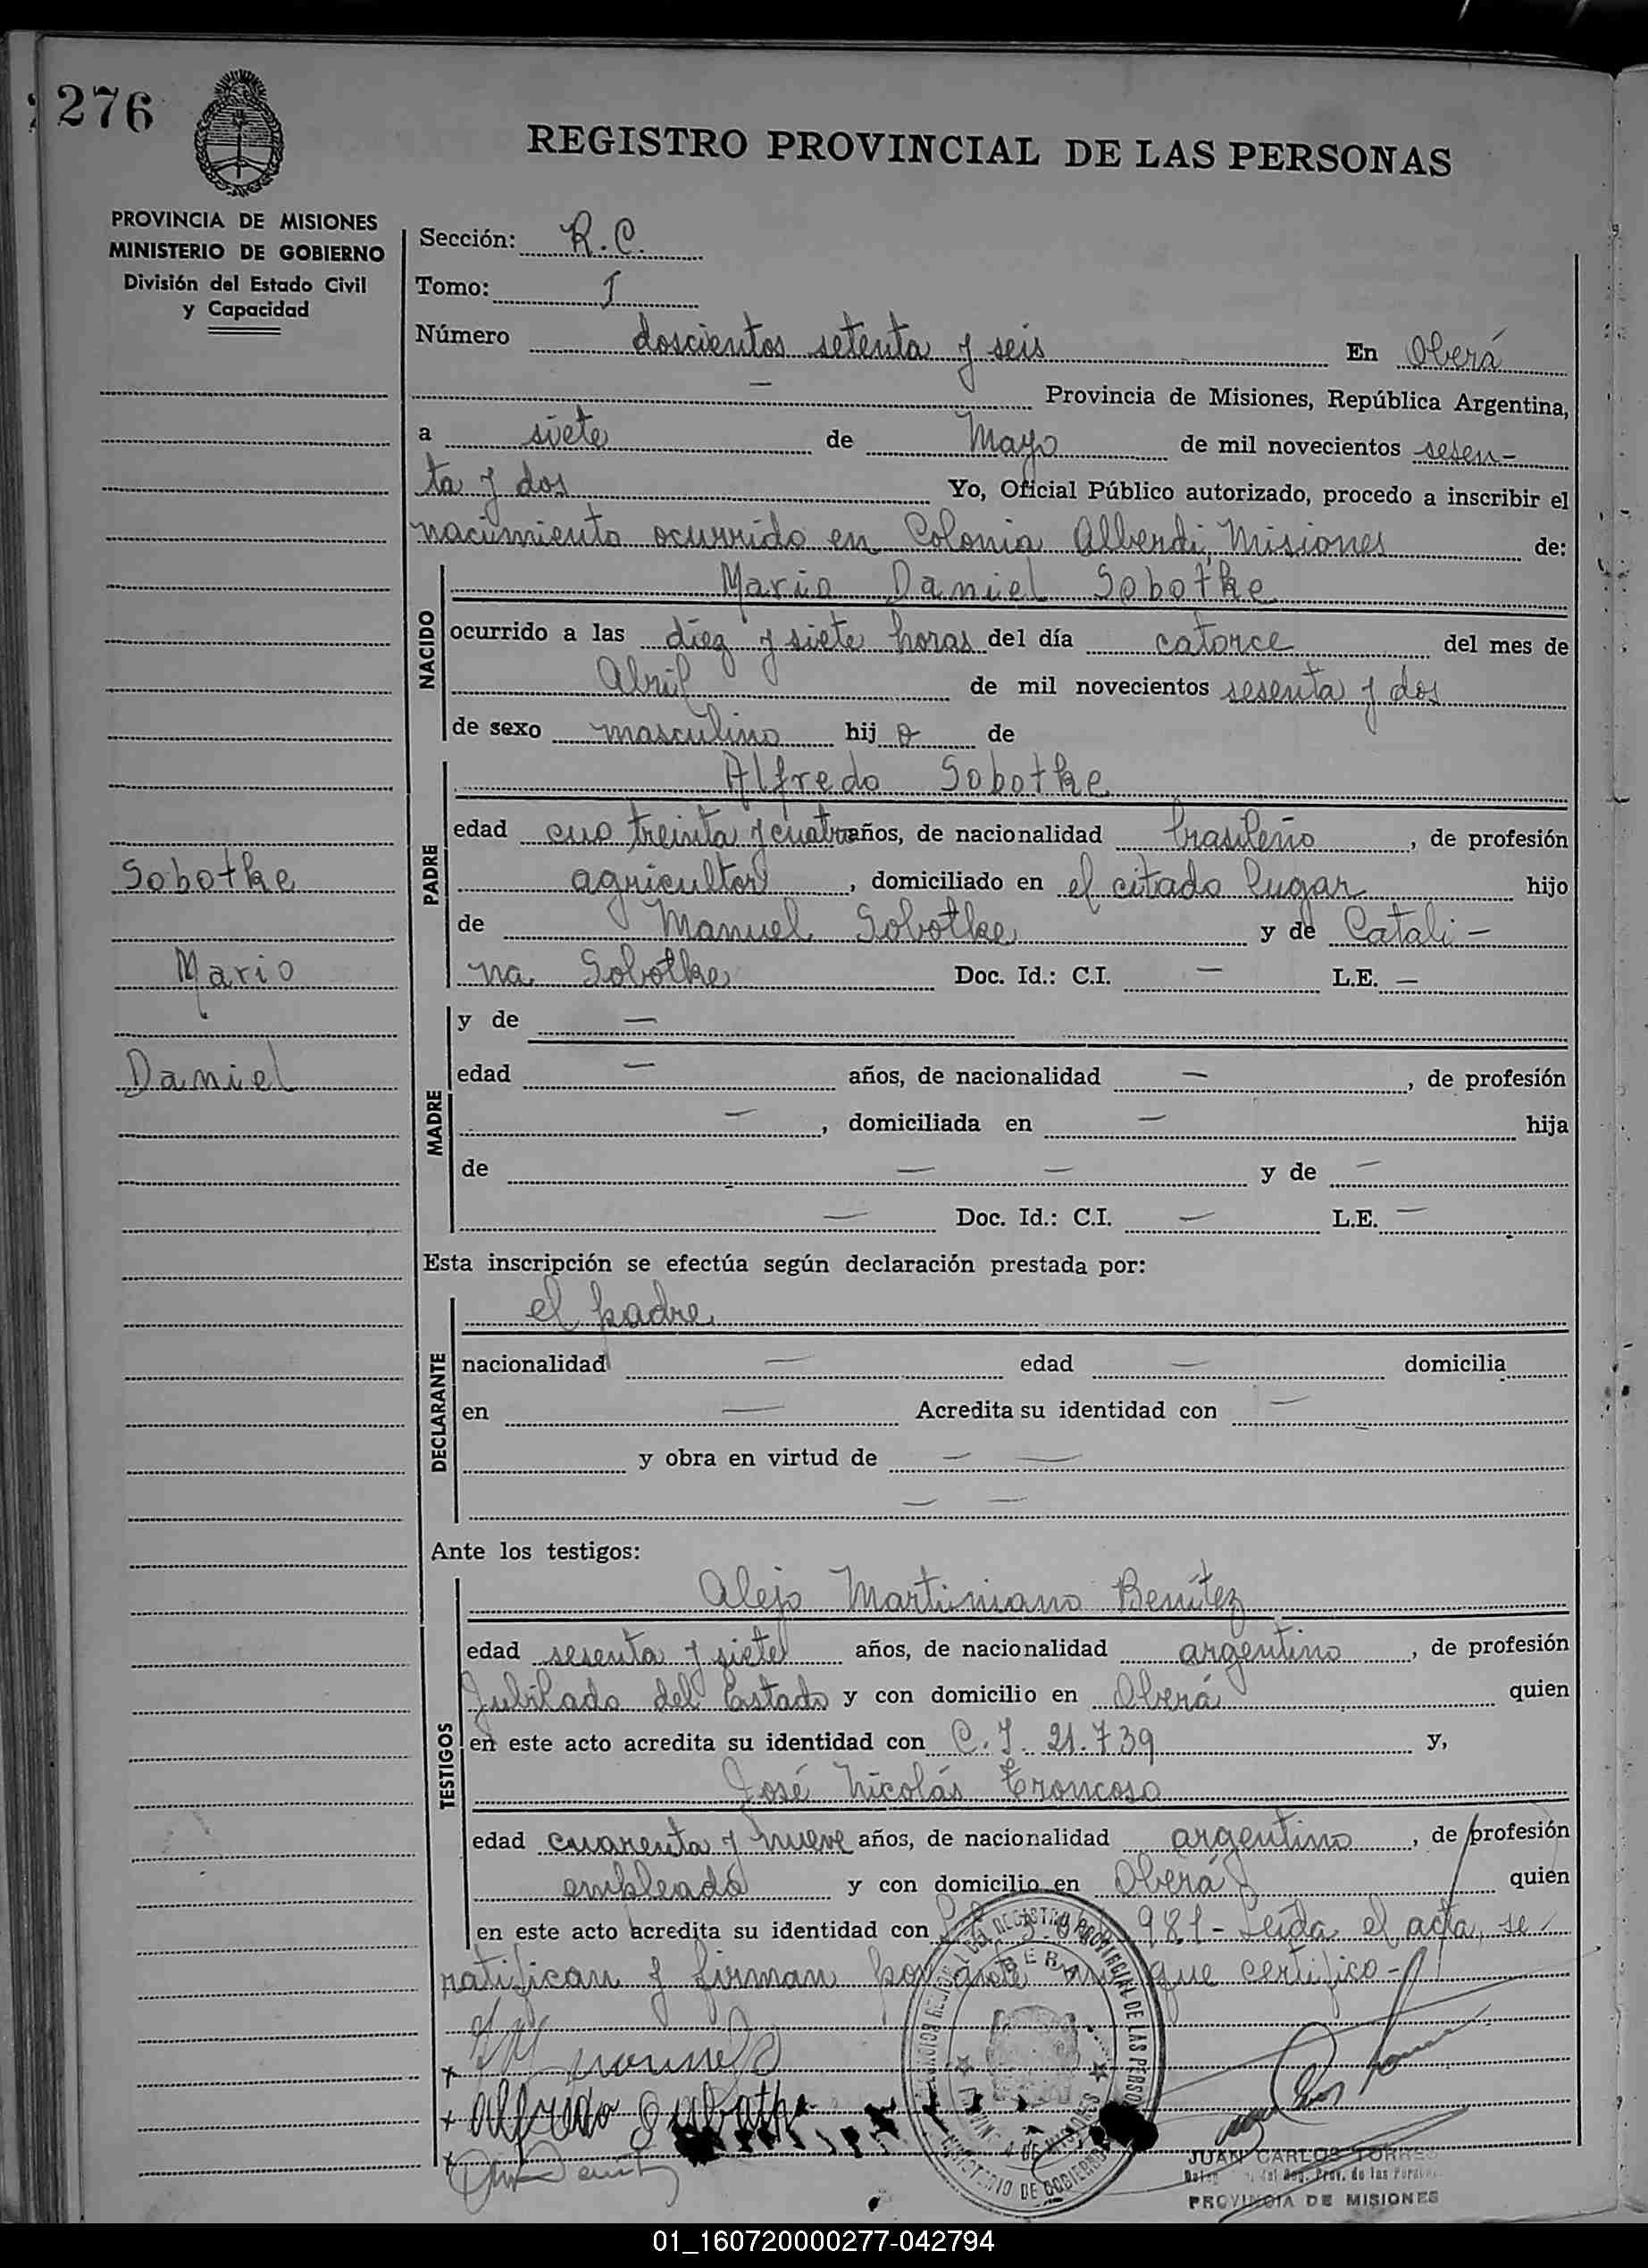 276
REGISTRO PROVINCIAL DE LAS PERSONAS
PROVINCIA DE MISIONES
MINISTERIO DE GOBIERNO
División del Estado Civil
y Capacidad
Sección: R. C.
Tomo: I
Número doscientos setenta y seis En Oberá
— Provincia de Misiones, República Argentina,
a siete de Mayo de mil novecientos sesen-
ta y dos Yo, Oficial Público autorizado, procedo a inscribir el
nacimiento ocurrido en Colonia Alberdi, Misiones de:
NACIDO
Mario Daniel Sobotke
ocurrido a las diez y siete horas del día catorce del mes de
Abril de mil novecientos sesenta y dos
de sexo masculino hij o de
PADRE
Alfredo Sobotke
edad treinta y cuatro años, de nacionalidad brasileño, de profesión
agricultor, domiciliado en el citado lugar hijo
de Manuel Sobotke y de Catali-
na Sobotke Doc. Id.: C.I. — L.E. —
Sobotke
Mario
Daniel
MADRE
y de —
edad — años, de nacionalidad —, de profesión
—, domiciliada en — hija
de — — y de —
— Doc. Id.: C.I. — L.E. —
Esta inscripción se efectúa según declaración prestada por:
DECLARANTE
el padre
nacionalidad — edad — domicilia
en — Acredita su identidad con —
y obra en virtud de — —
— —
Ante los testigos:
TESTIGOS
Alejo Martiniano Benítez
edad sesenta y siete años, de nacionalidad argentino, de profesión
Jubilado del Estado y con domicilio en Oberá quien
en este acto acredita su identidad con C. I. 21.739 y,
José Nicolás Troncoso
edad cuarenta y nueve años, de nacionalidad argentino, de profesión
empleado y con domicilio en Oberá quien
en este acto acredita su identidad con 981 - Leida el acta, se
ratifican y firman por ante que certifico -
Alfredo
REGISTRO PROVINCIAL DE LAS PERSONAS
OBERA
PROVINCIA DE MISIONES
MINISTERIO DE GOBIERNO
JUAN CARLOS TORRES
del Reg. Prov. de las Personas
PROVINCIA DE MISIONES
01_160720000277-042794